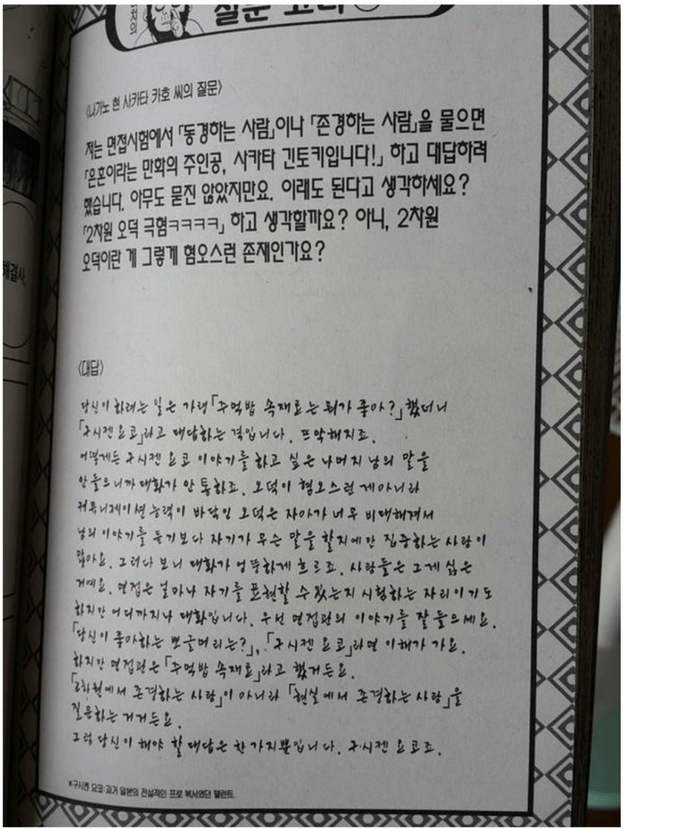 질문 코너
<나가노 현 사카타 카호 씨의 질문>
저는 면접시험에서 「동경하는 사람」이나 「존경하는 사람」을 물으면
「은혼이라는 만화의 주인공, 사카타 긴토키입니다!」 하고 대답하려
했습니다. 아무도 묻진 않았지만요. 이래도 된다고 생각하세요?
「2차원 오덕 극혐ㅋㅋㅋㅋ」 하고 생각할까요? 아니, 2차원
오덕이란 게 그렇게 혐오스런 존재인가요?
해결사
<대답>
당신이 하려는 일은 가령 「주먹밥 속재료는 뭐가 좋아?」 했더니
「구시켄 요코」라고 대답하는 격입니다. 뜨악해지죠.
어떻게든 구시켄 요코 이야기를 하고 싶은 나머지 남의 말을
안 들으니까 대화가 안 통하죠. 오덕이 혐오스런 게 아니라
커뮤니케이션 능력이 바닥인 오덕은 자아가 너무 비대해져서
남의 이야기를 듣기보다 자기가 무슨 말을 할지에만 집중하는 사람이
많아요. 그러다 보니 대화가 엉뚱하게 흐르죠. 사람들은 그게 싫은
거예요. 면접은 얼마나 자기를 표현할 수 있는지 시험하는 자리이기도
하지만 어디까지나 대화입니다. 우선 면접관의 이야기를 잘 들으세요.
「당신이 좋아하는 뽀글머리는?」, 「구시켄 요코」라면 이해가 가요.
하지만 면접관은 「주먹밥 속재료」라고 했거든요.
「2차원에서 존경하는 사람」이 아니라 「현실에서 존경하는 사람」을
질문하는 거거든요.
그럼 당신이 해야 할 대답은 한 가지뿐입니다. 구시켄 요코죠.
*구시켄 요코: 과거 일본의 전설적인 프로 복서였던 탤런트.